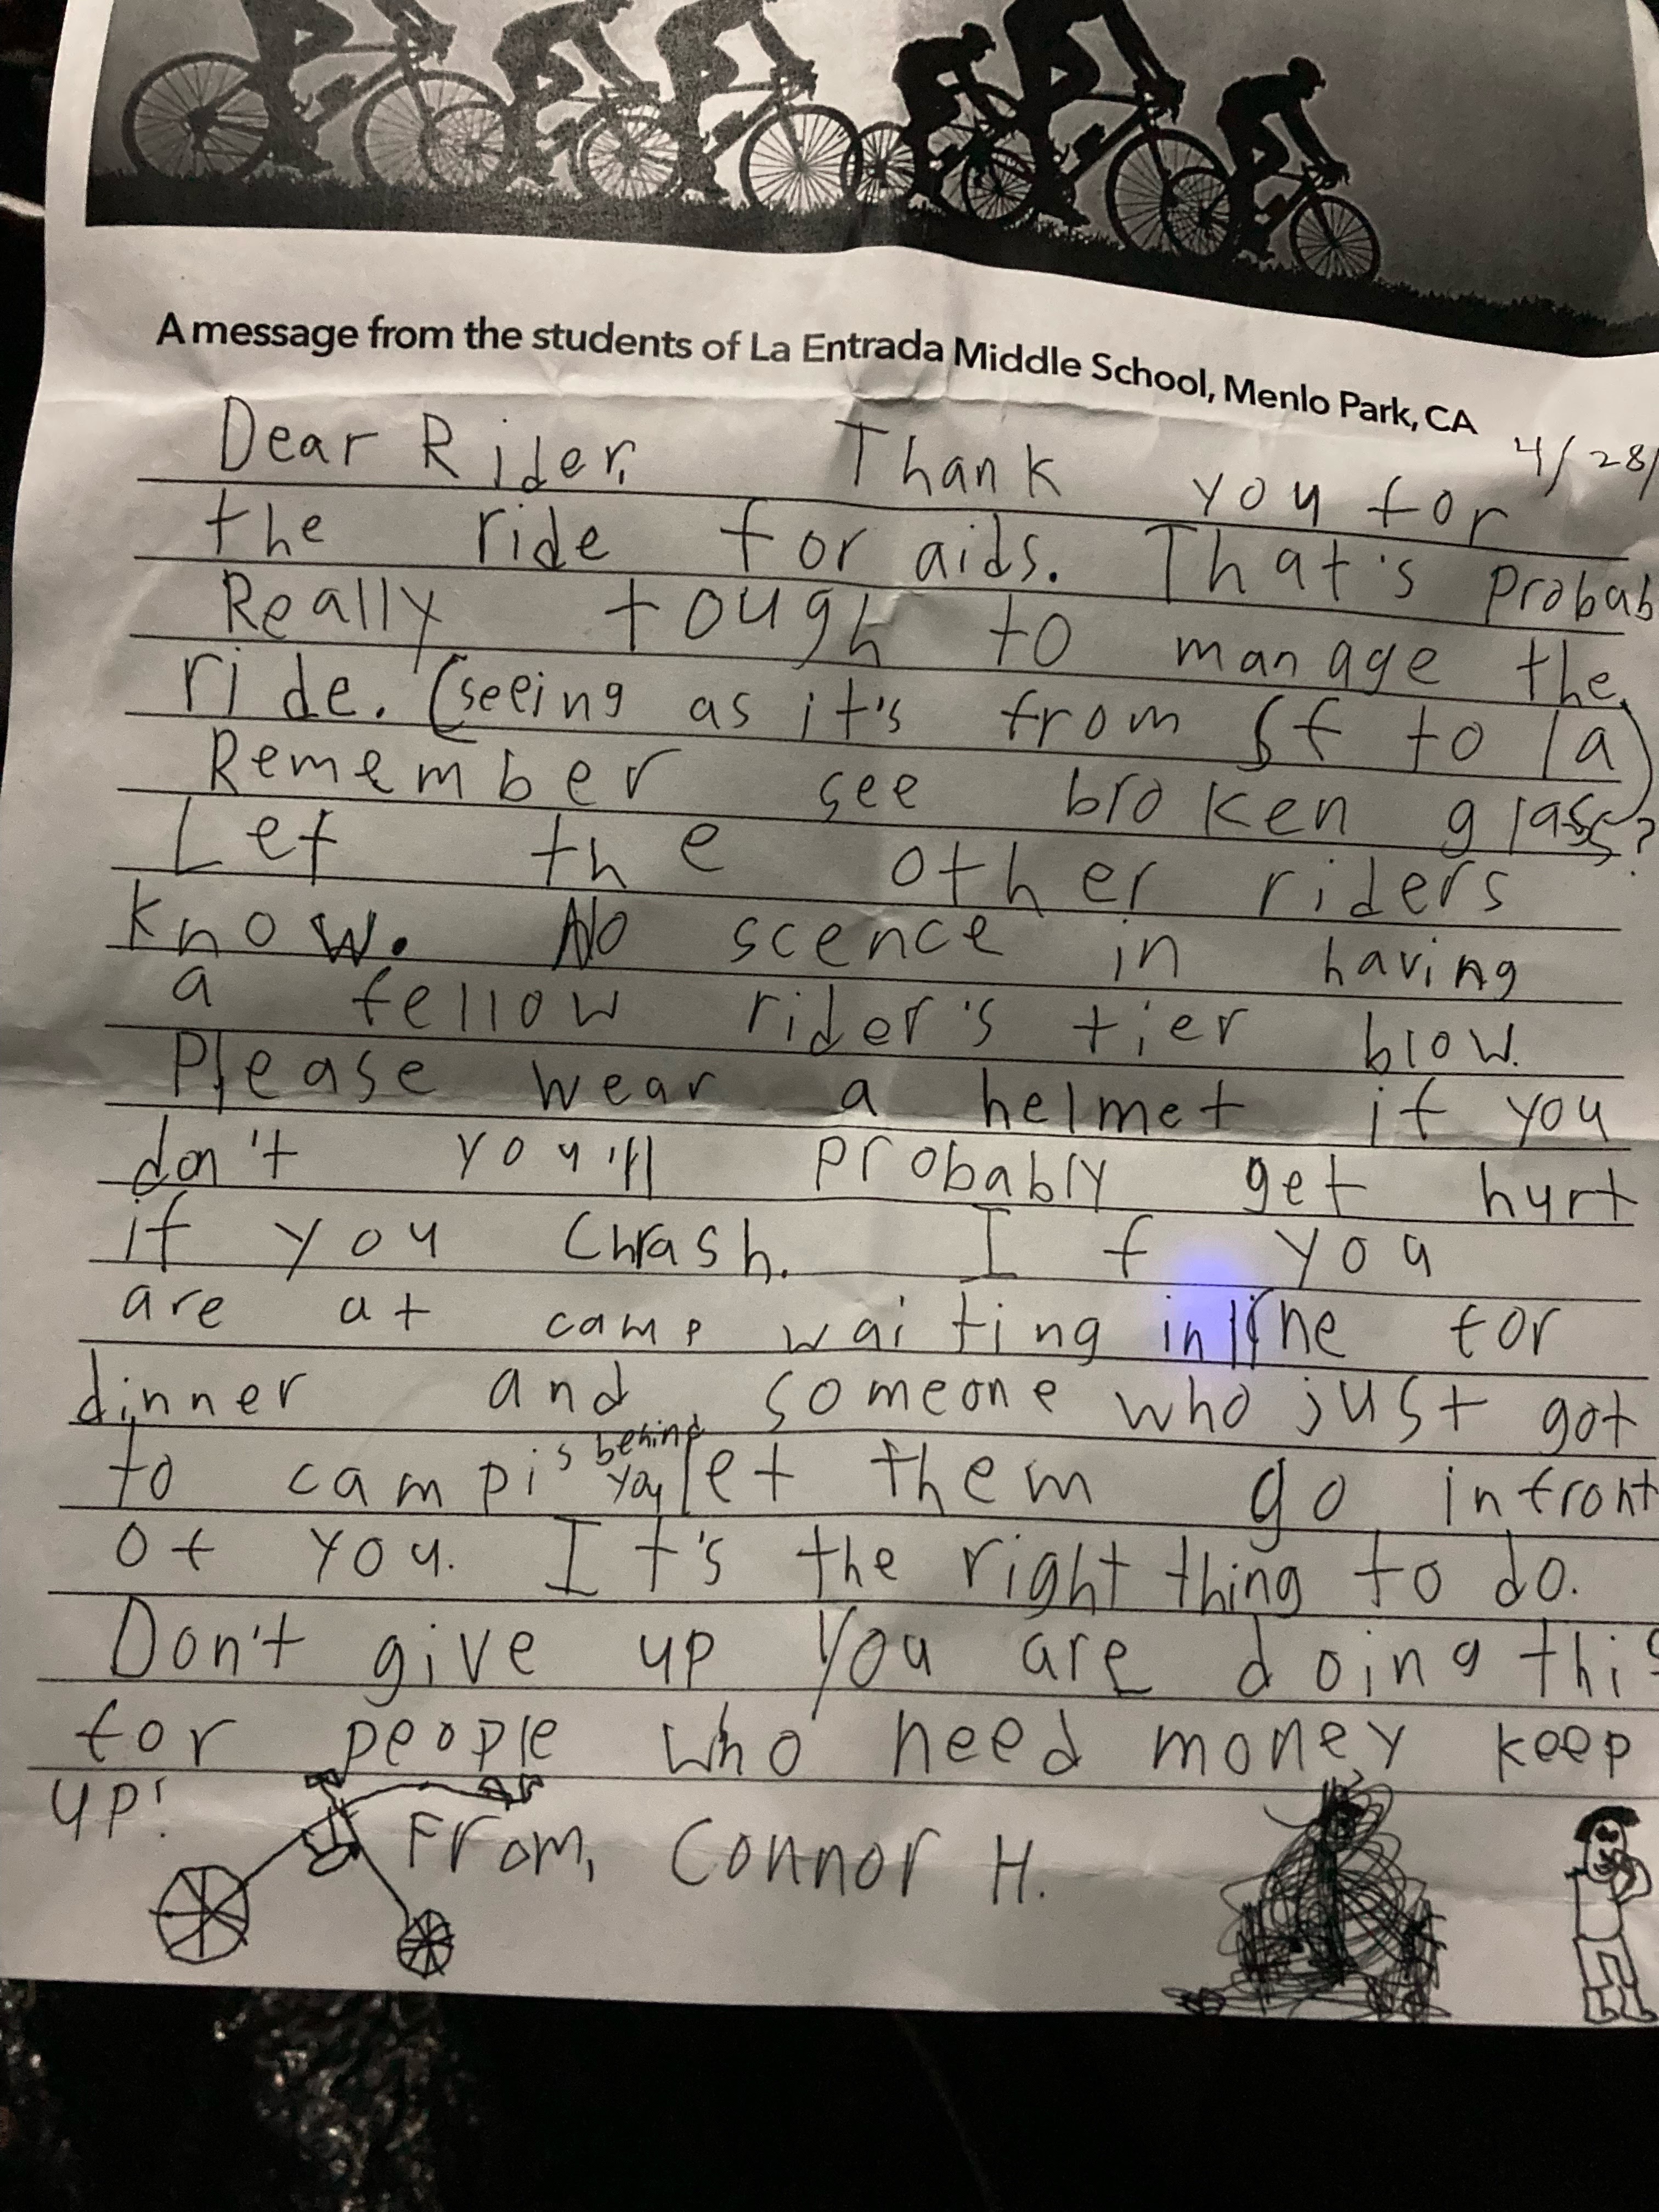 A message from the students of La Entrada Middle School, Menlo Park, CA
4/28/
Dear Rider, Thank you for
the ride for aids. That's Probab
Really tough to manage the
ride. (seeing as it's from sf to la)
Remember see broken glass?
Let the other riders
know. No scence in having
a fellow rider's tier blow.
Please wear a helmet if you
don't you'll probably get hurt
if you Chrash. If you
are at camp waiting in line for
dinner and someone who just got
to camp is behind you let them go infront
of you. It's the right thing to do.
Don't give up You are doing this
for people who need money keep
up!
From, Connor H.